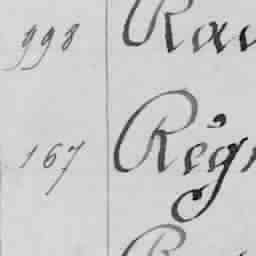 998 Rau
167 Règ